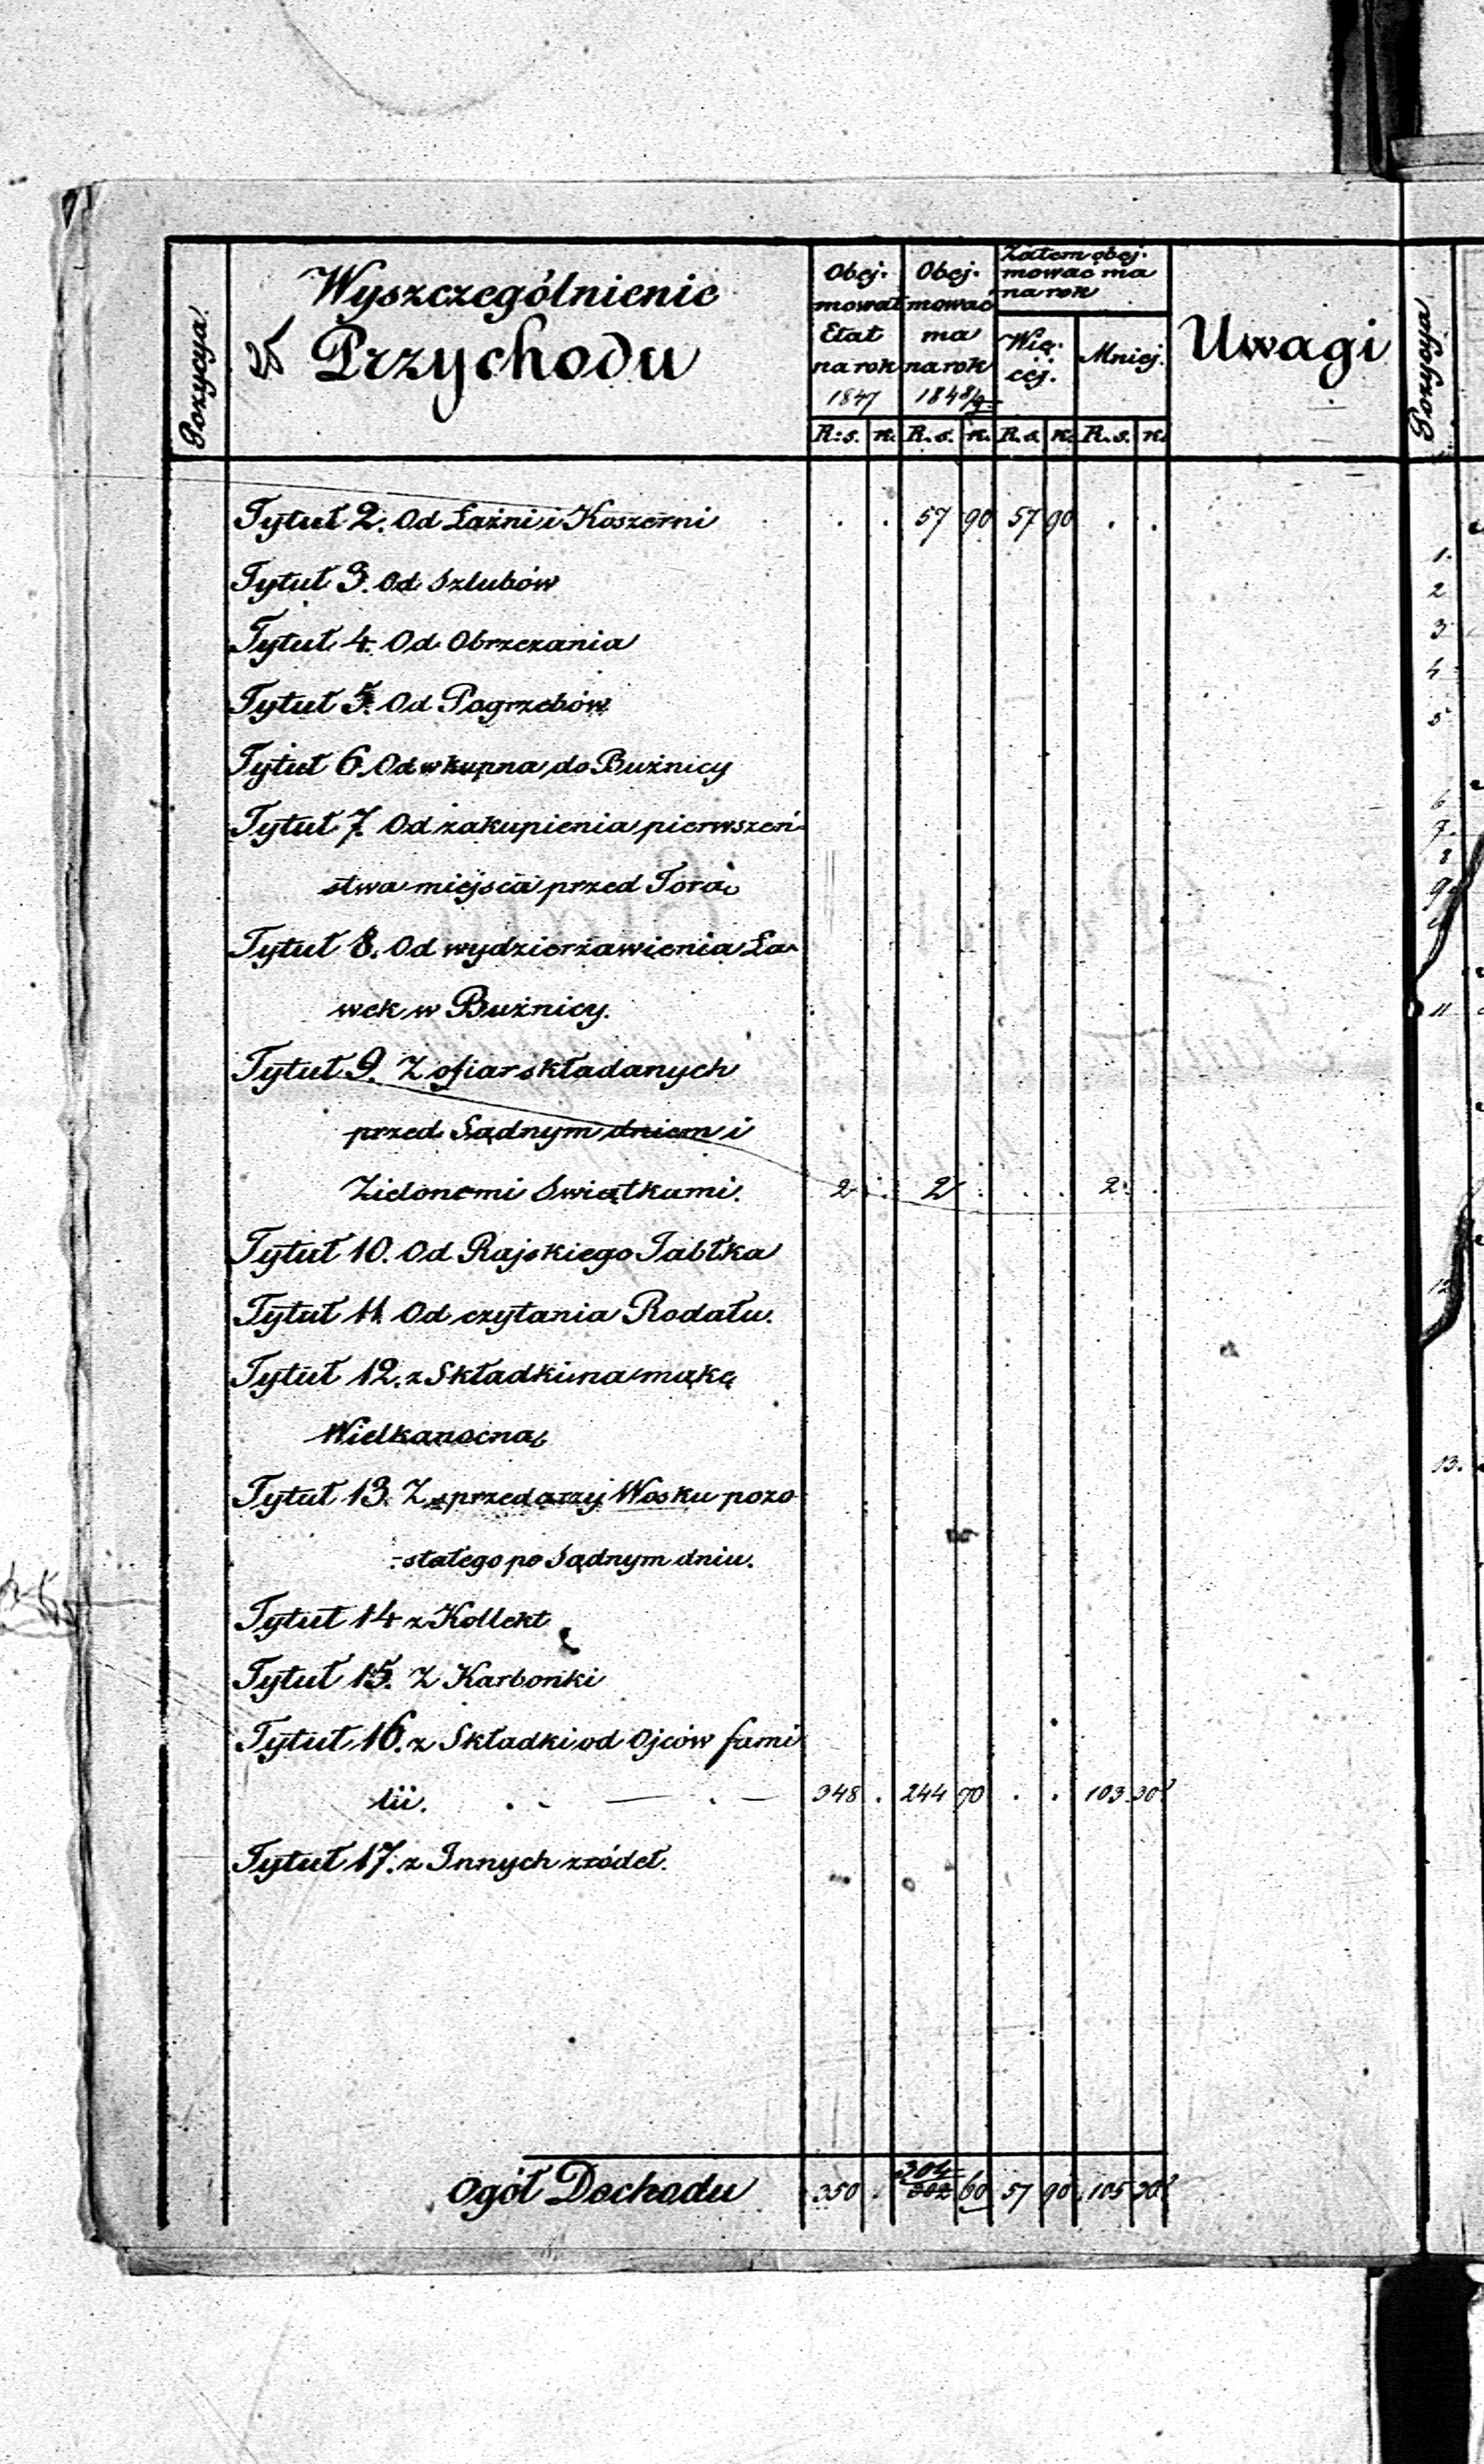 Pozycya
Wyszczególnienie
Przychodu
Obej-
mował
Etat
na rok
1847
Obej-
mować
ma
na rok
1848/9
Zatem obej-
mować ma
na rok
Wię-
cej.
Mniej.
Uwagi
Pozycya
R:s. k. R.s. k. R.s. k. R.s. k.
Tytuł 2. Od Łaźni i Koszerni . . 57 90 57 90 . .
Tytuł 3. Od Szlubów
Tytuł 4. Od Obrzezania
Tytuł 5. Od Pogrzebów
Tytuł 6. Od wkupna do Bużnicy
Tytuł 7. Od zakupienia pierwszeń-
stwa miejsca przed Torą
Tytuł 8. Od wydzierżawienia Ła-
wek w Bużnicy.
Tytuł 9. Z ofiar składanych
przed Sądnym dniem i
Zielonemi Swiątkami. 2 . 2 . . . 2 .
Tytuł 10. Od Rajskiego Jabłka
Tytuł 11. Od czytania Rodału.
Tytuł 12. z Składki na mąkę
Wielkanocną
Tytuł 13. Z sprzedarzy Wosku pozo
-stałego po Sądnym dniu.
Tytuł 14 z Kollekt
Tytuł 15. Z Karbonki
Tytuł 16. z Składki od Ojców fami
lii. . - — . — 348 . 244 70 . . 103 30
Tytuł 17. z Innych zródeł.
304
Ogół Dochodu 350 . 302 60 57 90 105 30
1.
2
3
4
5
6
7.
8
9
11
12
13.